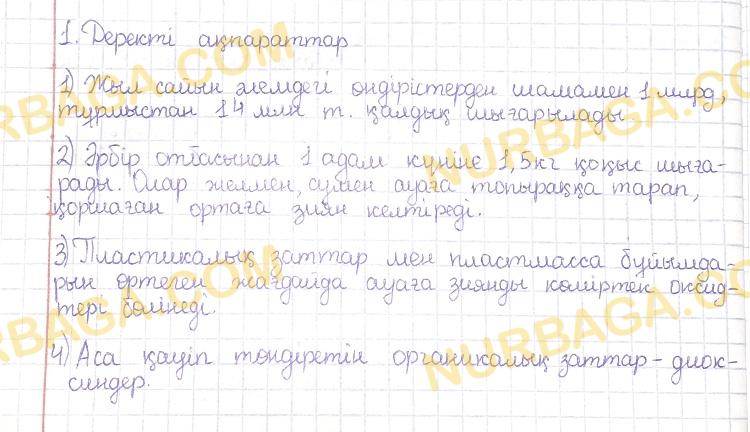 1. Деректі ақпараттар
1) Жыл сайын әлемдегі өндірістерден шамамен 1 млрд,
тұрмыстан 14 млн т. қалдық шығарылады.
2) Әрбір отбасынан 1 адам күніне 1,5 кг қоқыс шыға-
рады. Олар желмен, сумен ауаға топыраққа тарап,
қоршаған ортаға зиян келтіреді.
3) Пластикалық заттар мен пластмасса бұйымда-
рын өртеген жағдайда ауаға зиянды көміртек оксид-
тері бөлінеді.
4) Аса қауіп төндіретін органикалық заттар - диок-
синдер.
NURBAGA.COM
NURBAGA.COM
NURBAGA.COM
NURBAGA.COM